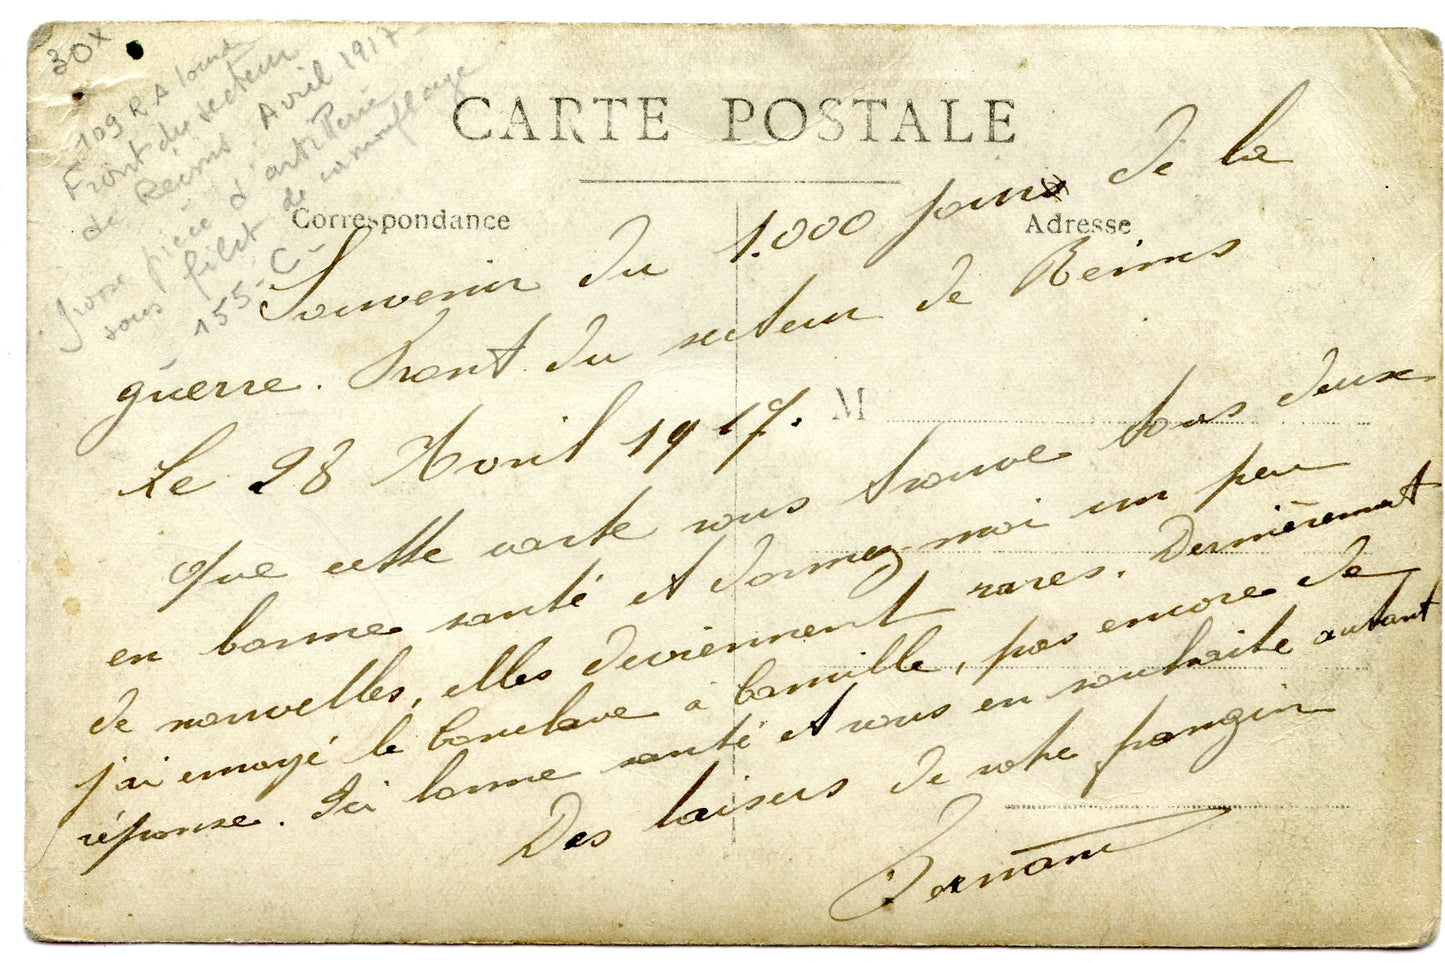 30x
109 R A lourde
Front du secteur
de Reims. Avril 1917 -
Grosse pièce d'artillerie
sous filet de camouflage
155 - C -
CARTE POSTALE
Correspondance
Adresse
Souvenir du 1.000 jours de la
guerre. Front du secteur de Reims
Le 28 Avril 1917.
M
Que cette carte vous trouve tous deux
en bonne santé et donnez-moi un peu
de nouvelles, elles deviennent rares. Dernièrement
j'ai envoyé le Conclave à Camille, pas encore de
réponse. Ici bonne santé et vous en souhaite autant
Des baisers de votre frangin
Fernand